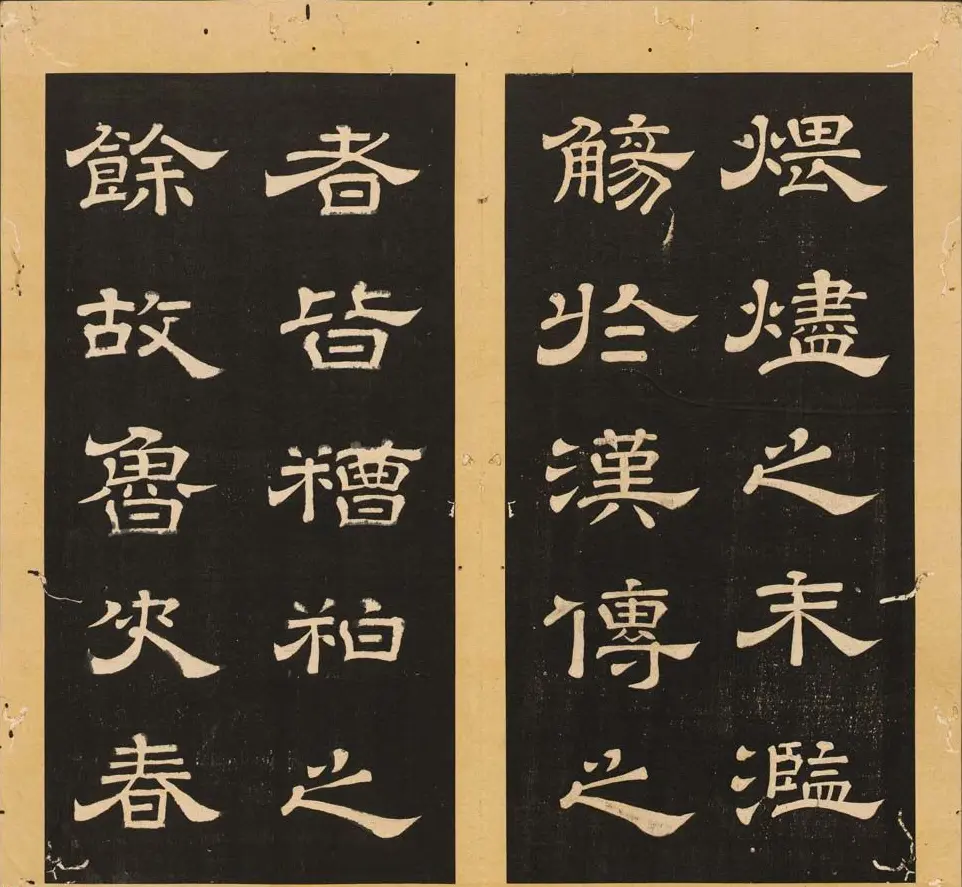 煨燼之末濫
觴於漢傳之
者皆糟粕之
餘故魯史春